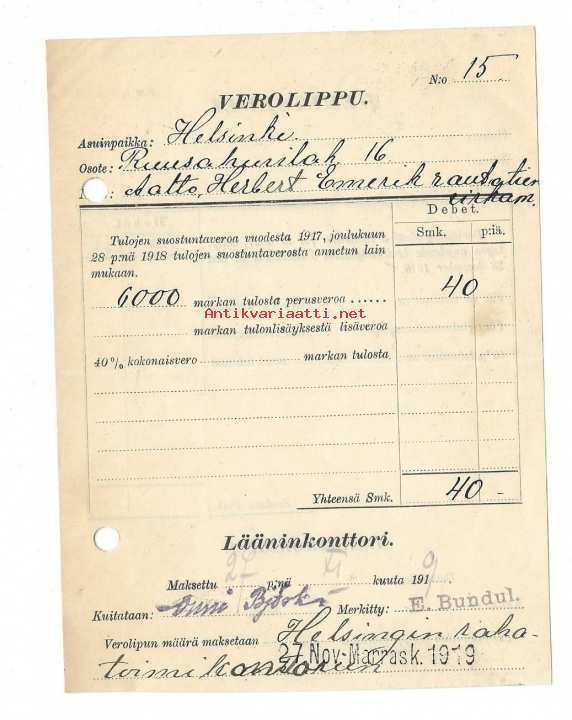 N:o 15.
VEROLIPPU.
Asuinpaikka: Helsinki.
Osote: Ruusa 16
Aalto, Herbert Emerik rautatien
virkam.
Debet.
Smk. p:iä.
Tulojen suostuntaveroa vuodesta 1917, joulukuun
28 p:nä 1918 tulojen suostuntaverosta annetun lain
mukaan.
6000 markan tulosta perusveroa ...... 40
Antikvariaatti.net
markan tulonlisäyksestä lisäveroa
40% kokonaisvero markan tulosta
Yhteensä Smk. 40 -
Lääninkonttori.
Maksettu 27 p:nä XI. kuuta 1919
Kuitataan: Merkitty: E. Bundul.
Verolipun määrä maksetaan Helsingin raha-
toimikonttoriin
27 Nov-Marrask. 1919